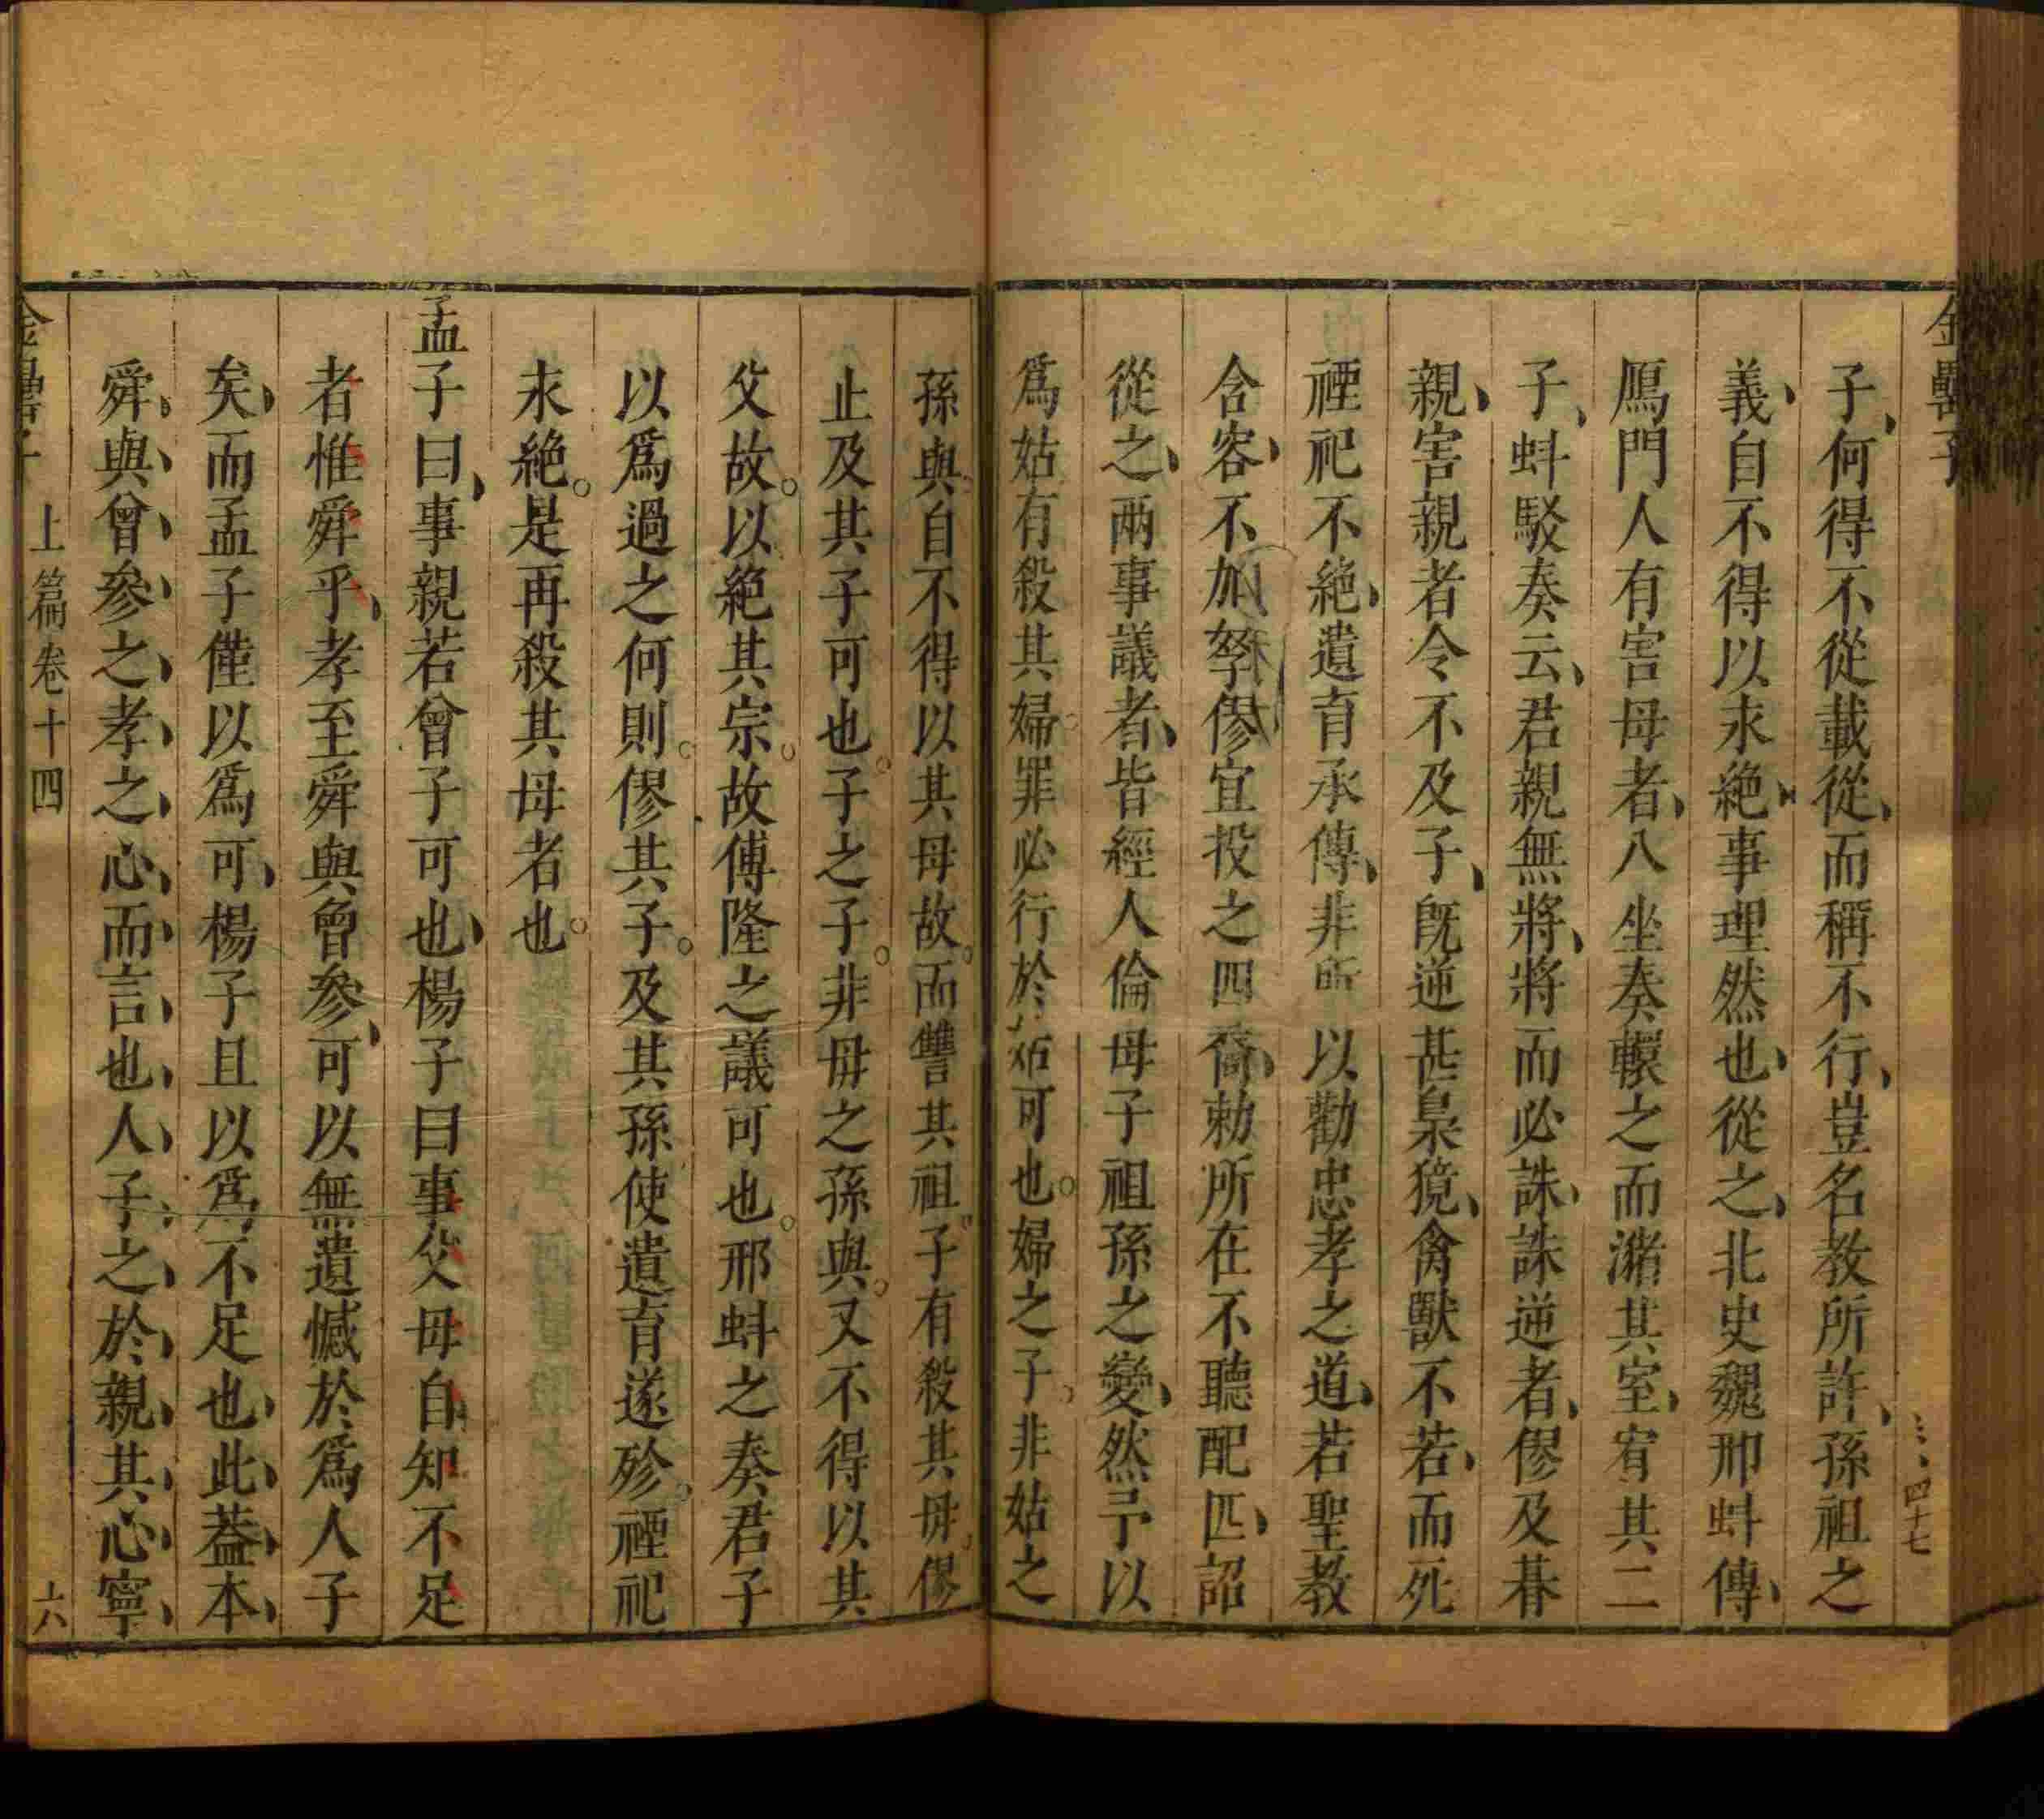 子何得不從載從而稱不行豈名教所許孫祖之
義自不得以永絕事理然也從之北史魏邢蚪傳
鴈門人有害母者八坐奏轘之而瀦其室宥其二
子蚪駁奏云君親無將將而必誅誅逆者僇及朞
親害親者令不及子旣逆甚梟獍禽獸不若而死
禋祀不絕遺育承傳非所以勸忠孝之道若聖教
含容不加孥僇宜投之四裔勅所在不聽配匹詔
從之兩事議者皆經人倫母子祖孫之變然予以
爲姑有殺其婦罪必行於姑可也婦之子非姑之
孫與自不得以其母故而讐其祖子有殺其母僇
止及其子可也子之子非母之孫與又不得以其
父故以絕其宗故傅隆之議可也邢蚪之奏君子
以爲過之何則僇其子及其孫使遺育遂殄禋祀
永絕是再殺其母者也
孟子曰事親若曾子可也楊子曰事父母自知不足
者惟舜乎孝至舜與曾參可以無遺憾於爲人子
矣而孟子僅以爲可楊子且以爲不足也此葢本
舜與曾參之孝之心而言也人子之於親其心寧
上篇卷十四
六
四十七